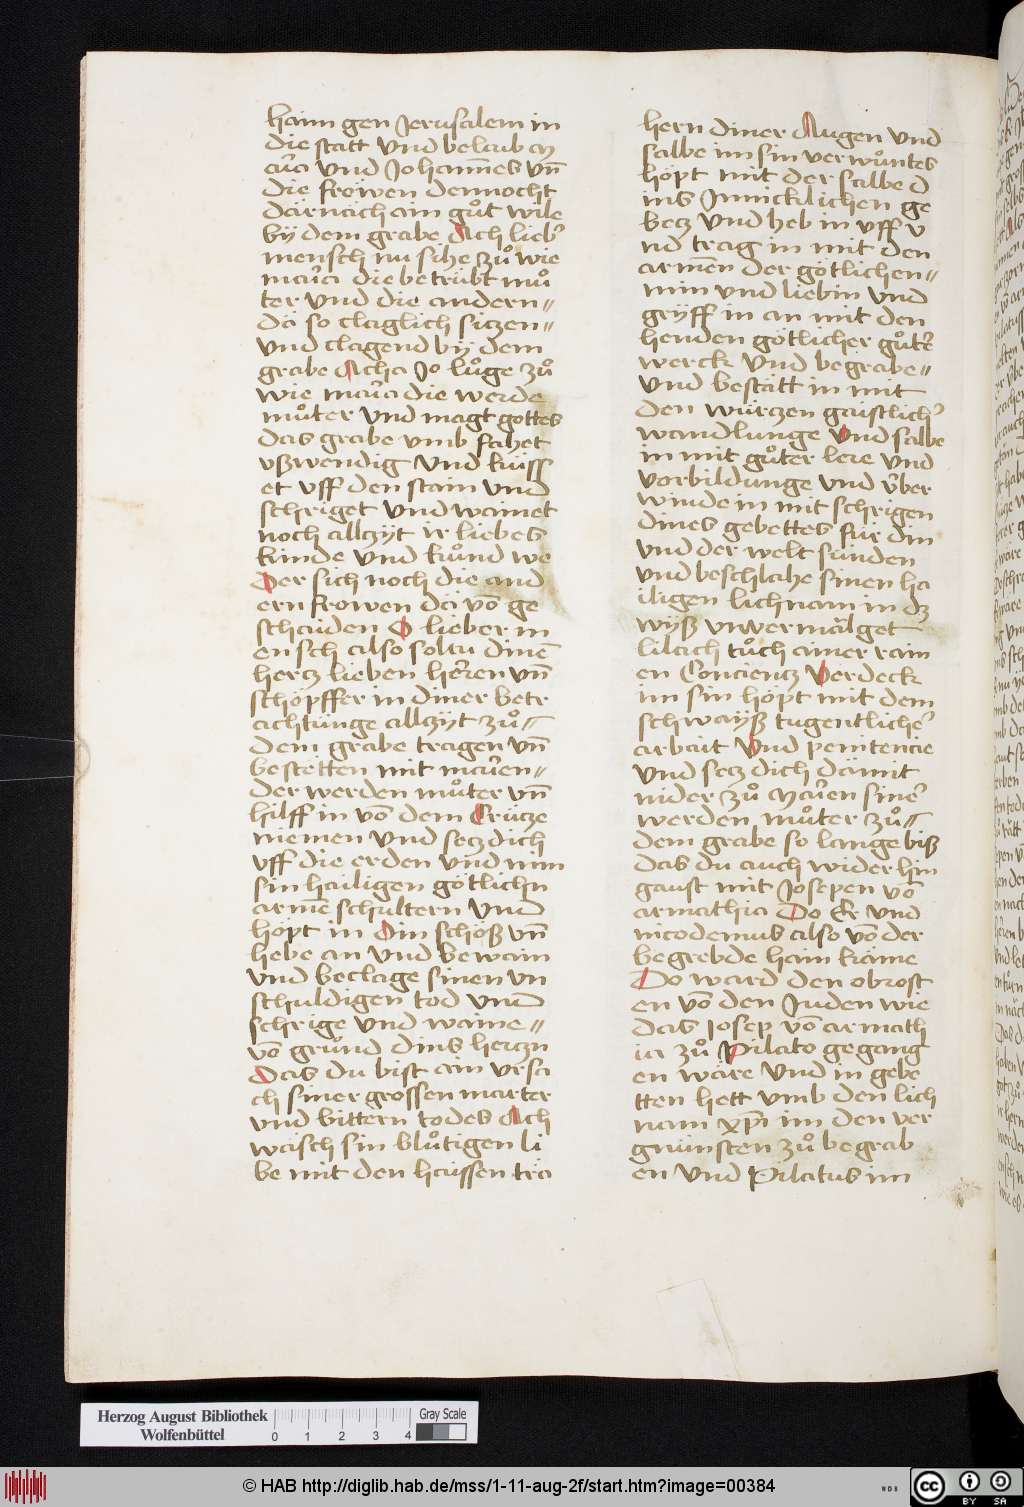 haim gen Jerusalem in
die statt vnd belaib M
aria vnd Johannes vn̄
die fröwen dennocht
därnäch ain gůt wile
bÿ dem grabe Ach lieb͛
mensch nu sihe zů wie
maria die betrübt mů
ter vnd die andern〃
dä so claglich siczen〃
vnd clagend bÿ dem
grabe Acha Jo lůge zů
wie maria die werde
můter vnd magt gottes
das grabe vmb fahet
vßwendig vnd küss
et vff den stain vnd
schriget vnd wainet
noch allzÿt ir liebes
kinde vnd kůnd we
Der sich noch die and
ern frowen dä vō ge
schaiden O lieber m
ensch also soltu dinē
hercz lieben herren vn̄
schöpffer in diner betr
achtunge allzÿt zů〃
dem grabe tragen vn̄
bestetten mit maren〃
der werden můter vn̄
hilff in vō dem Crücze
niemen vnd secz dich
vff die erden vnd nim
sin hailigen götlichn
armē schultern vnd
höpt in Din schöß vn̄
hebe an vnd bewain
vnd beclage sinen vn
schuldigen tod vnd
schrige vnd waine〃
vō grund dins herczn
Das du bist ain vrsa
ch siner grossen marter
vnd bittern todes Ach
wäsch sin blůtigen li
be mit den haissen trä
hern diner Augen vnd
salbe im sin verwůntes
höpt mit der salbe d
ins Jnnicklichen ge
betz vnd heb in vff v
nd trag in mit den
armēn der götlichen〃
min vnd liebin vnd
gryff in an mit den
henden götlicher gůter
werck vnd begrabe〃
vnd bestätt in mit
den würczen gaistlich͛
wandlunge vnd salbe
in mit gůter lere vnd
vorbildunge vnd v̈ber
winde in mit schrigen
dines gebettes für din
vnd der welt sünden
vnd beschlahe sinen ha
iligen lichnam in dz
wyß vnvermälget
lilach tůch ainer rain
en Concientz Verdeck
im sin höpt mit dem
schwayß tugentlicher
arbait Vnd penitencie
vnd secz dich dämit
nider zů Maren siner
werden můter zů〃
dem grabe so lange biß
das du auch wider hin
gaust mit Josepen vō
armathia Do Er vnd
nicodemus also vō der
begrebde haim käme
Do ward den obrost
en vō den Juden wie
das Josep vō armath
ia zů Pilato gegang
en wäre vnd in gebe
tten hett vmb den lich
nam xp̄i im den ver
gnünsten zů begrab
en vnd Pilatus im
Herzog August Bibliothek
Wolfenbüttel
0 1 2 3 4
Gray Scale
© HAB http://diglib.hab.de/mss/1-11-aug-2f/start.htm?image=00384
WDB
cc BY SA